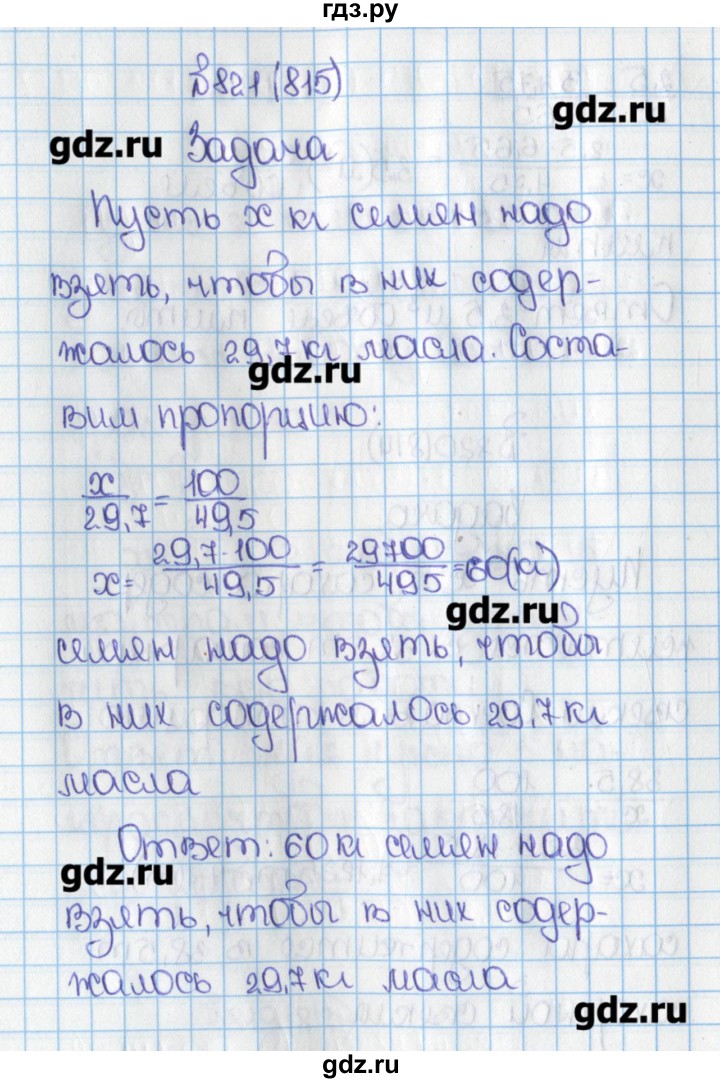 гдз.ру
№821(815)
gdz.ru
gdz.ru Задача
Пусть x кг семян надо
взять, чтобы в них содер-
жалось 29,7кг масла. Соста-
gdz.ru
вим пропорцию:
x/29,7 = 100/49,5
x= 29,7·100/49,5 = 29700/495 =60(кг)
gdz.ru
семян надо взять, чтобы
в них содержалось 29,7кг
масла
Ответ: 60кг семян надо
gdz.ru
взять, чтобы в них содер-
жалось 29,7кг масла
gdz.ru
gdz.ru